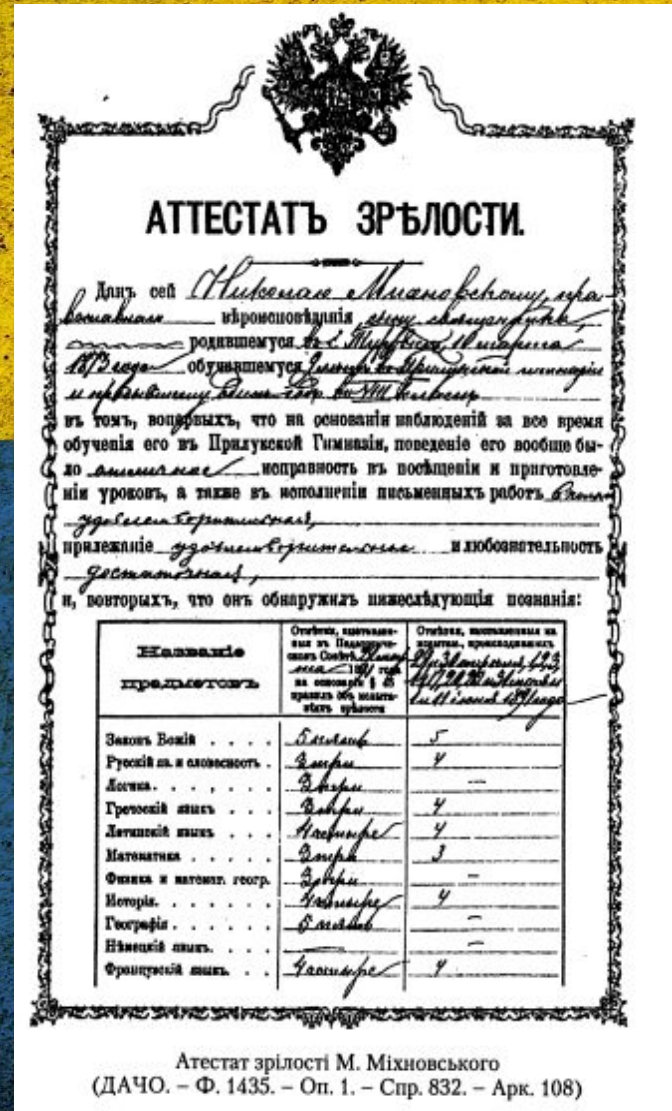 АТТЕСТАТЪ ЗРѢЛОСТИ.
Данъ сей Николаю Михновскому, пра-
вославнаго вѣроисповѣданія, сыну священника,
родившемуся въ с. Туровкѣ, 10 марта
1873 года обучавшемуся въ Прилукской гимназіи
и пробывшему одинъ годъ въ VIII классѣ
въ томъ, вопервыхъ, что на основаніи наблюденій за все время
обученія его въ Прилукской Гимназіи, поведеніе его вообще бы-
ло отличное исправность въ посѣщеніи и приготовле-
ніи уроковъ, а также въ исполненіи письменныхъ работъ вполнѣ
удовлетворительная,
прилежаніе удовлетворительное и любознательность
достаточная,
и, вовторыхъ, что онъ обнаружилъ нижеслѣдующія познанія:
Названіе предметовъ
Отмѣтки, выставлен-
ныя въ Педагогиче-
скомъ Совѣтѣ 1891 года
на основаніи § 45
правилъ объ испыта-
ніяхъ зрѣлости
Отмѣтки, выставленныя на
испытан., происходившихъ
и 11 іюня 1891 года
Законъ Божій . . . . 5 пять 5
Русскій яз. и словесность . 3 три 4
Логика. . . . . . 3 три –
Греческій языкъ . . . 3 три 4
Латинскій языкъ . . . 4 четыре 4
Математика . . . . . 3 три 3
Физика и математ. геогр. 3 три –
Исторія. . . . . . 4 четыре 4
Географія. . . . . . 5 пять –
Нѣмецкій языкъ. . . . — –
Французскій языкъ. . . 4 четыре 4
Атестат зрілості М. Міхновського
(ДАЧО. – Ф. 1435. – Оп. 1. – Спр. 832. – Арк. 108)